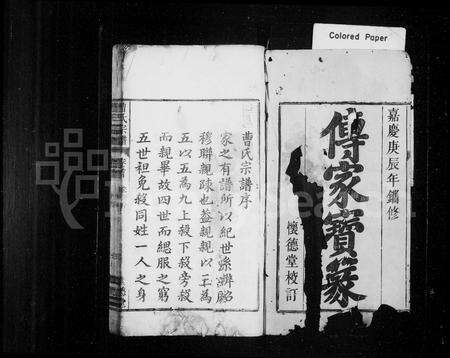 Colored Paper
嘉慶庚辰年鐫修
傳家寶篆
懷德堂校訂
曹氏宗譜序
家之有譜所以紀世系辨昭
穆聯親疎也蓋親親以三為
五以五為九上殺下殺旁殺
而親畢故四世而緦服之窮
五世袒免殺同姓一人之身